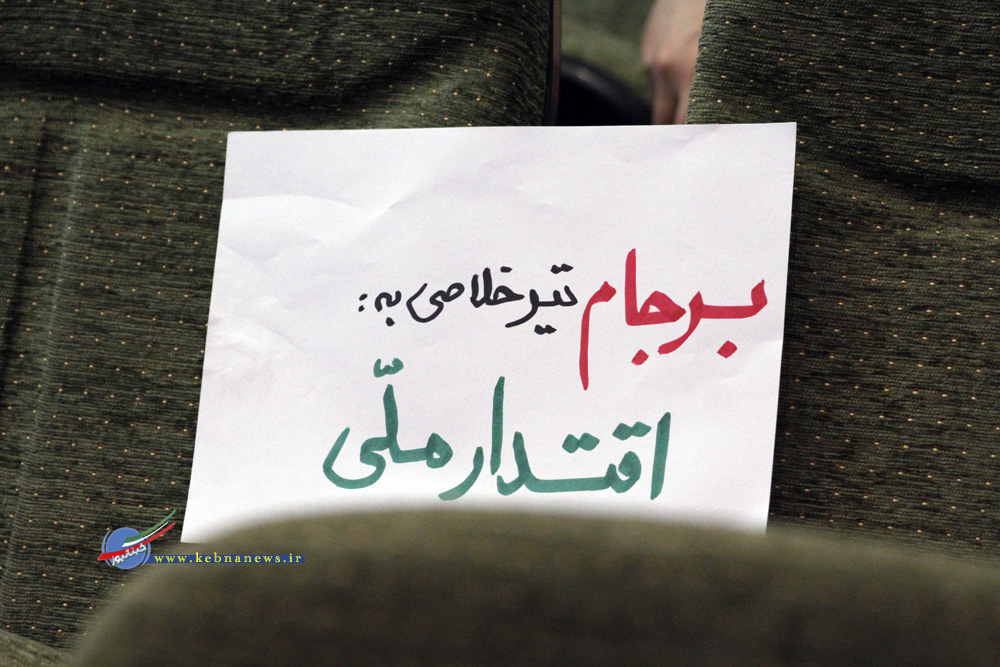 برجام تیر خلاصی به :
اقتدار ملّی
کبنانیوز
www.kebnanews.ir